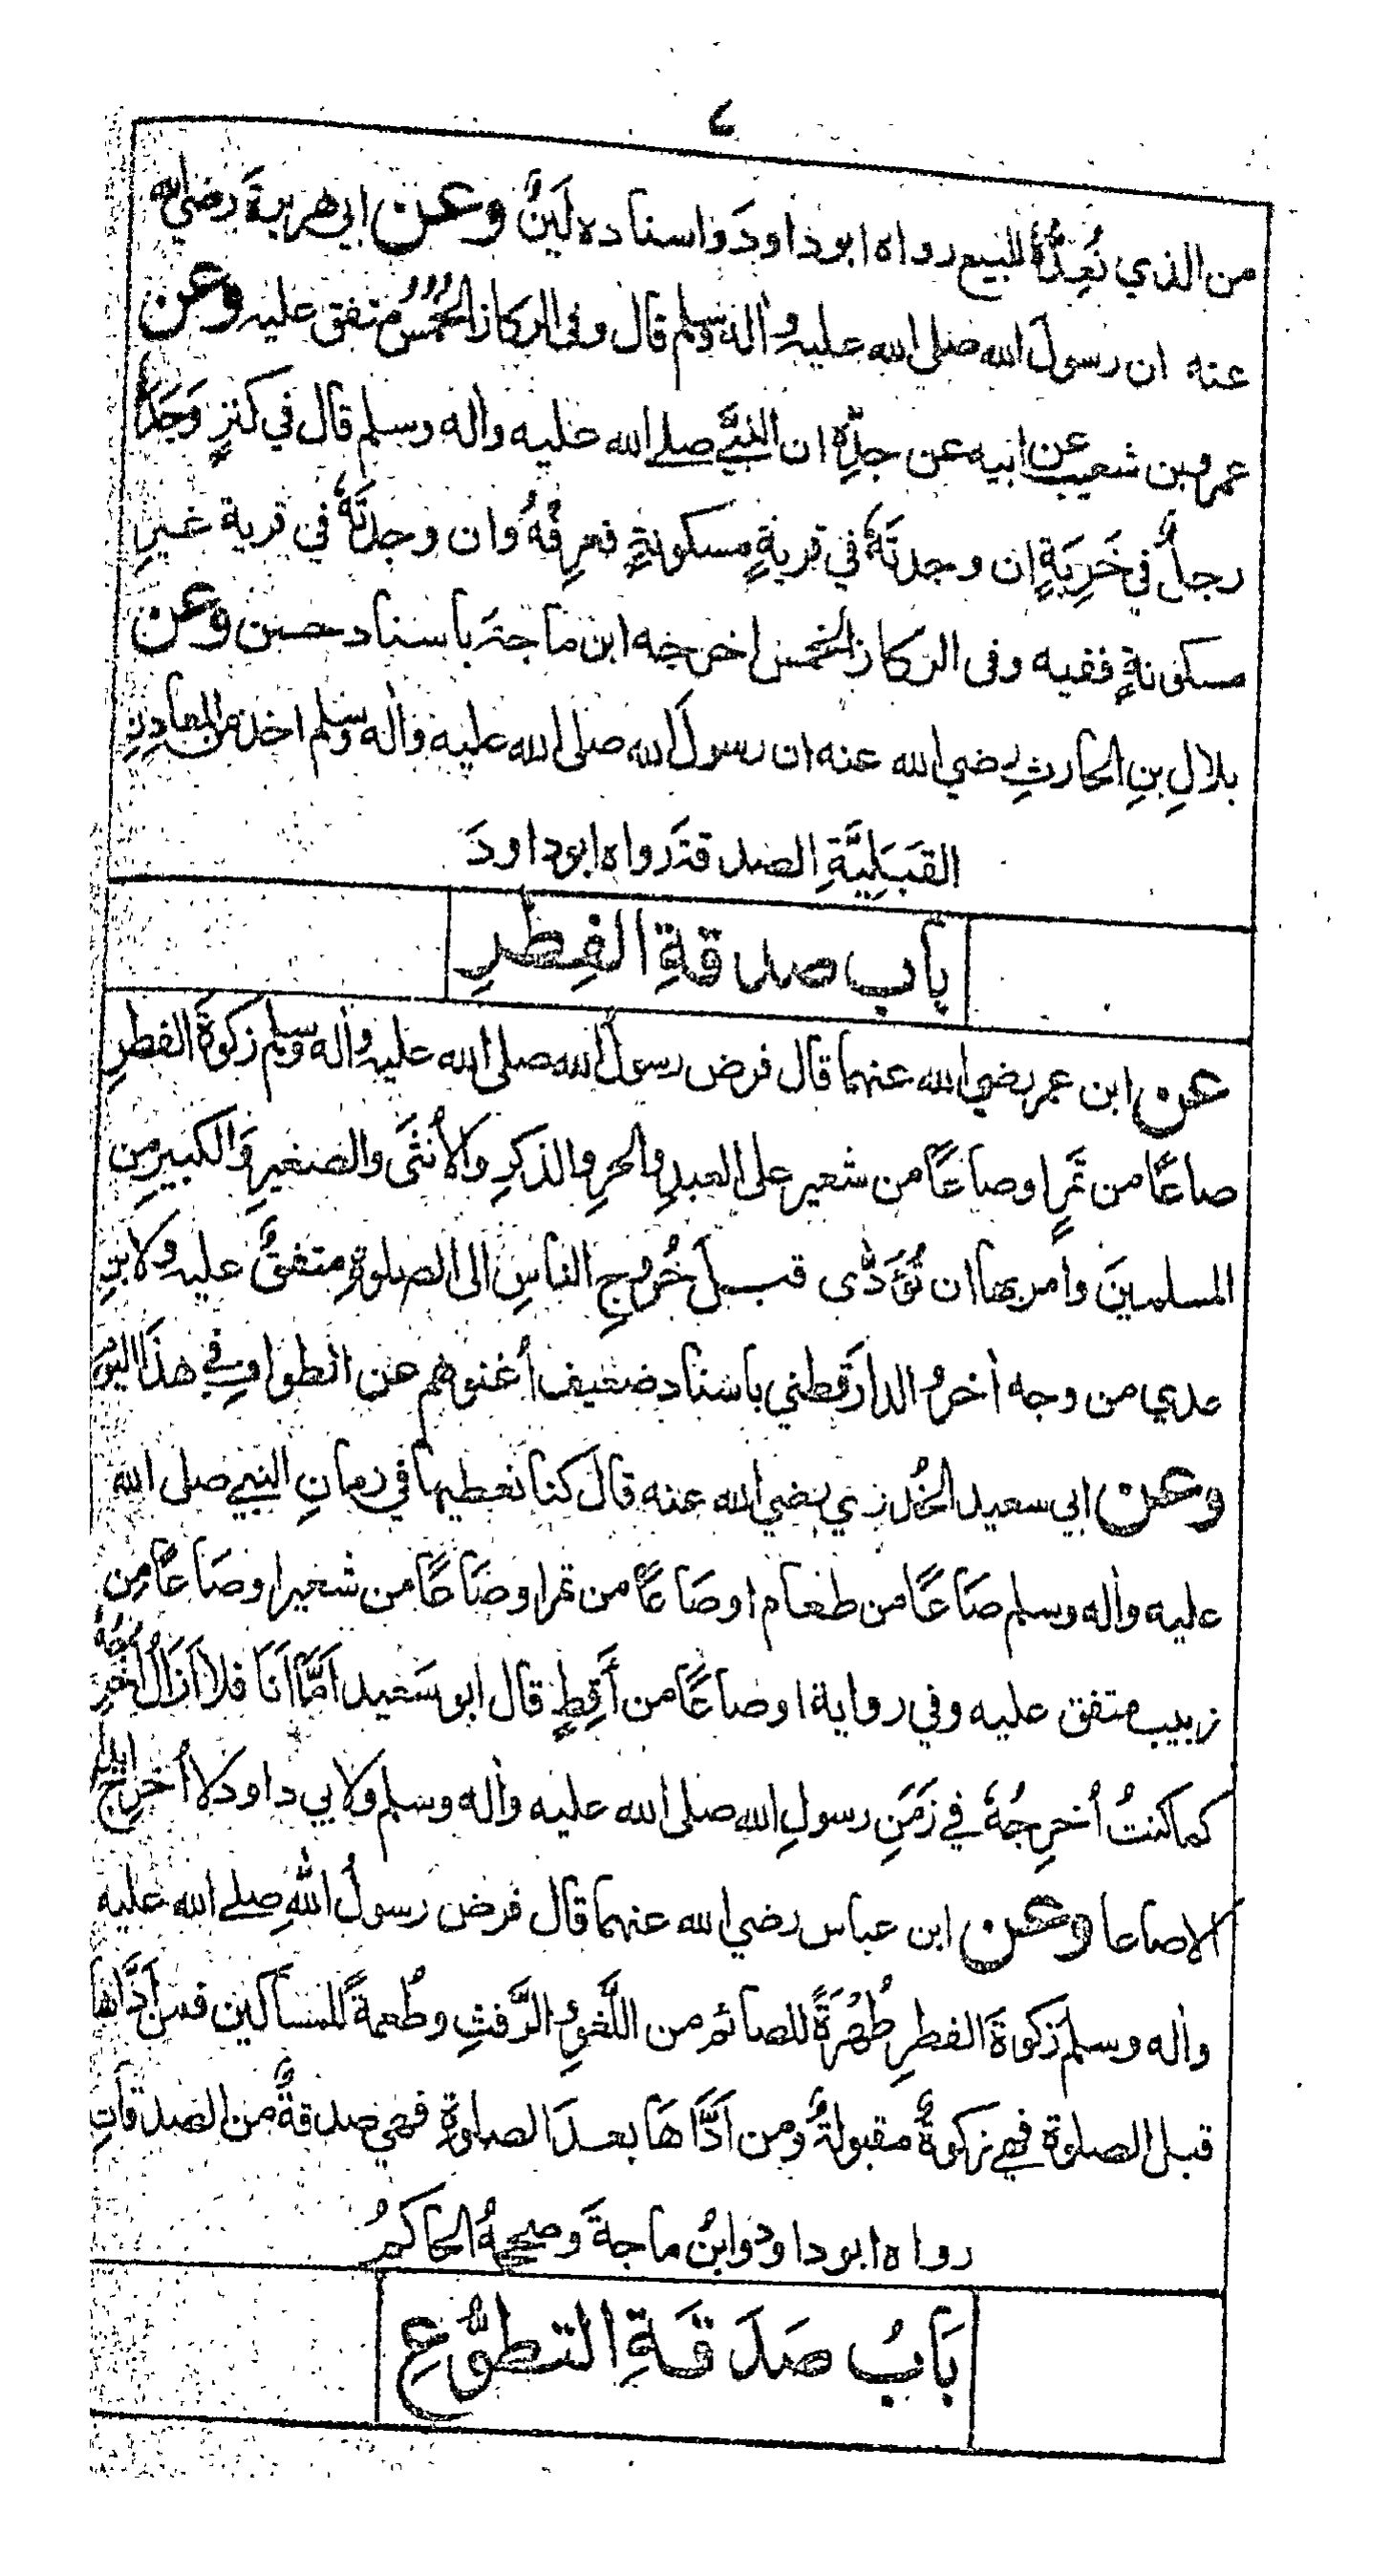 من الذي نُعِدُّهُ للبيع رواه ابو داودَ واسناده لَيِّنٌ وعن ابي هريرةَ رضي الله
عنه ان رسولَ الله صلى الله عليه واٰله وسلم قال وفى الركاز الخُمُسُ متفق عليه وعن
عمرو بن شعيب عن ابيه عن جدِّهٖ ان النبيَّ صلے الله عليه واٰله وسلم قال في كنزٍ وَجَدَهُ
رجلٌ في خَرِبَةٍ ان وجدتَهٗ في قريةٍ مسكونةٍ فعرِفْهُ وان وجدتَهٗ في قرية غيرِ
مسكونةٍ ففيه وفى الركاز الخمس اخرجه ابن ماجةَ باسناد حسن وعن
بلالِ بنِ الحارثِ رضي الله عنه ان رسولَ الله صلى الله عليه واٰله وسلم اخذ من المعادِنِ
القَبَلِيَّةِ الصدقةَ رواه ابو داودَ
باب صدقةِ الفِطْرِ
عن ابن عمر رضي الله عنهما قال فرض رسولُ الله صلى الله عليه واٰله وسلم زكوةَ الفطرِ
صاعًا من تمرٍ او صاعًا من شعير على العبدِ والحرِ والذكرِ والاُنثَى والصغيرِ والكبيرِ من
المسلمينَ وامر بها ان تُؤَدّٰى قبلَ خُروجِ الناسِ الى الصلوةِ متفقٌ عليه ولابنِ
عدي من وجه اٰخر والدارَقطني باسناد ضعيف اُغنوهم عن الطوافِ في هذا اليومِ
وعن ابي سعيد الخُدري رضي الله عنه قالَ كنا نعطيها في زمانِ النبيے صلى الله
عليه واٰله وسلم صَاعًا من طعام او صَاعًا من تمر او صَاعًا من شعير او صَاعًا مِن
زبيب متفق عليه وفي رواية او صاعًا من أَقِطٍ قال ابو سَعيد اَمَّا اَنَا فلا اَزَالُ اُخْرِجُهٗ
كما كنتُ اُخرِجُهٗ في زَمَنِ رسولِ الله صلى الله عليه واٰله وسلم ولابي داود لا اُخرِجُ ابدًا
الا صاعا وعن ابن عباس رضي الله عنهما قال فرض رسولُ اللّٰهِ صلے الله عليه
واٰله وسلم زكوةَ الفطرِ طُهْرَةً للصائم من اللَّغوِ والرَّفثِ وطُعمةً للمساكين فمن اَدَّاها
قبل الصلوة فهي زكوةٌ مقبولةٌ ومن اَدَّاهَا بعدَ الصلوةِ فهي صدقةٌ من الصدقاتِ
رواه ابو داود وابنُ ماجةَ وصححهُ الحاكمُ
بَابُ صَدَقَةِ التطوُّعِ